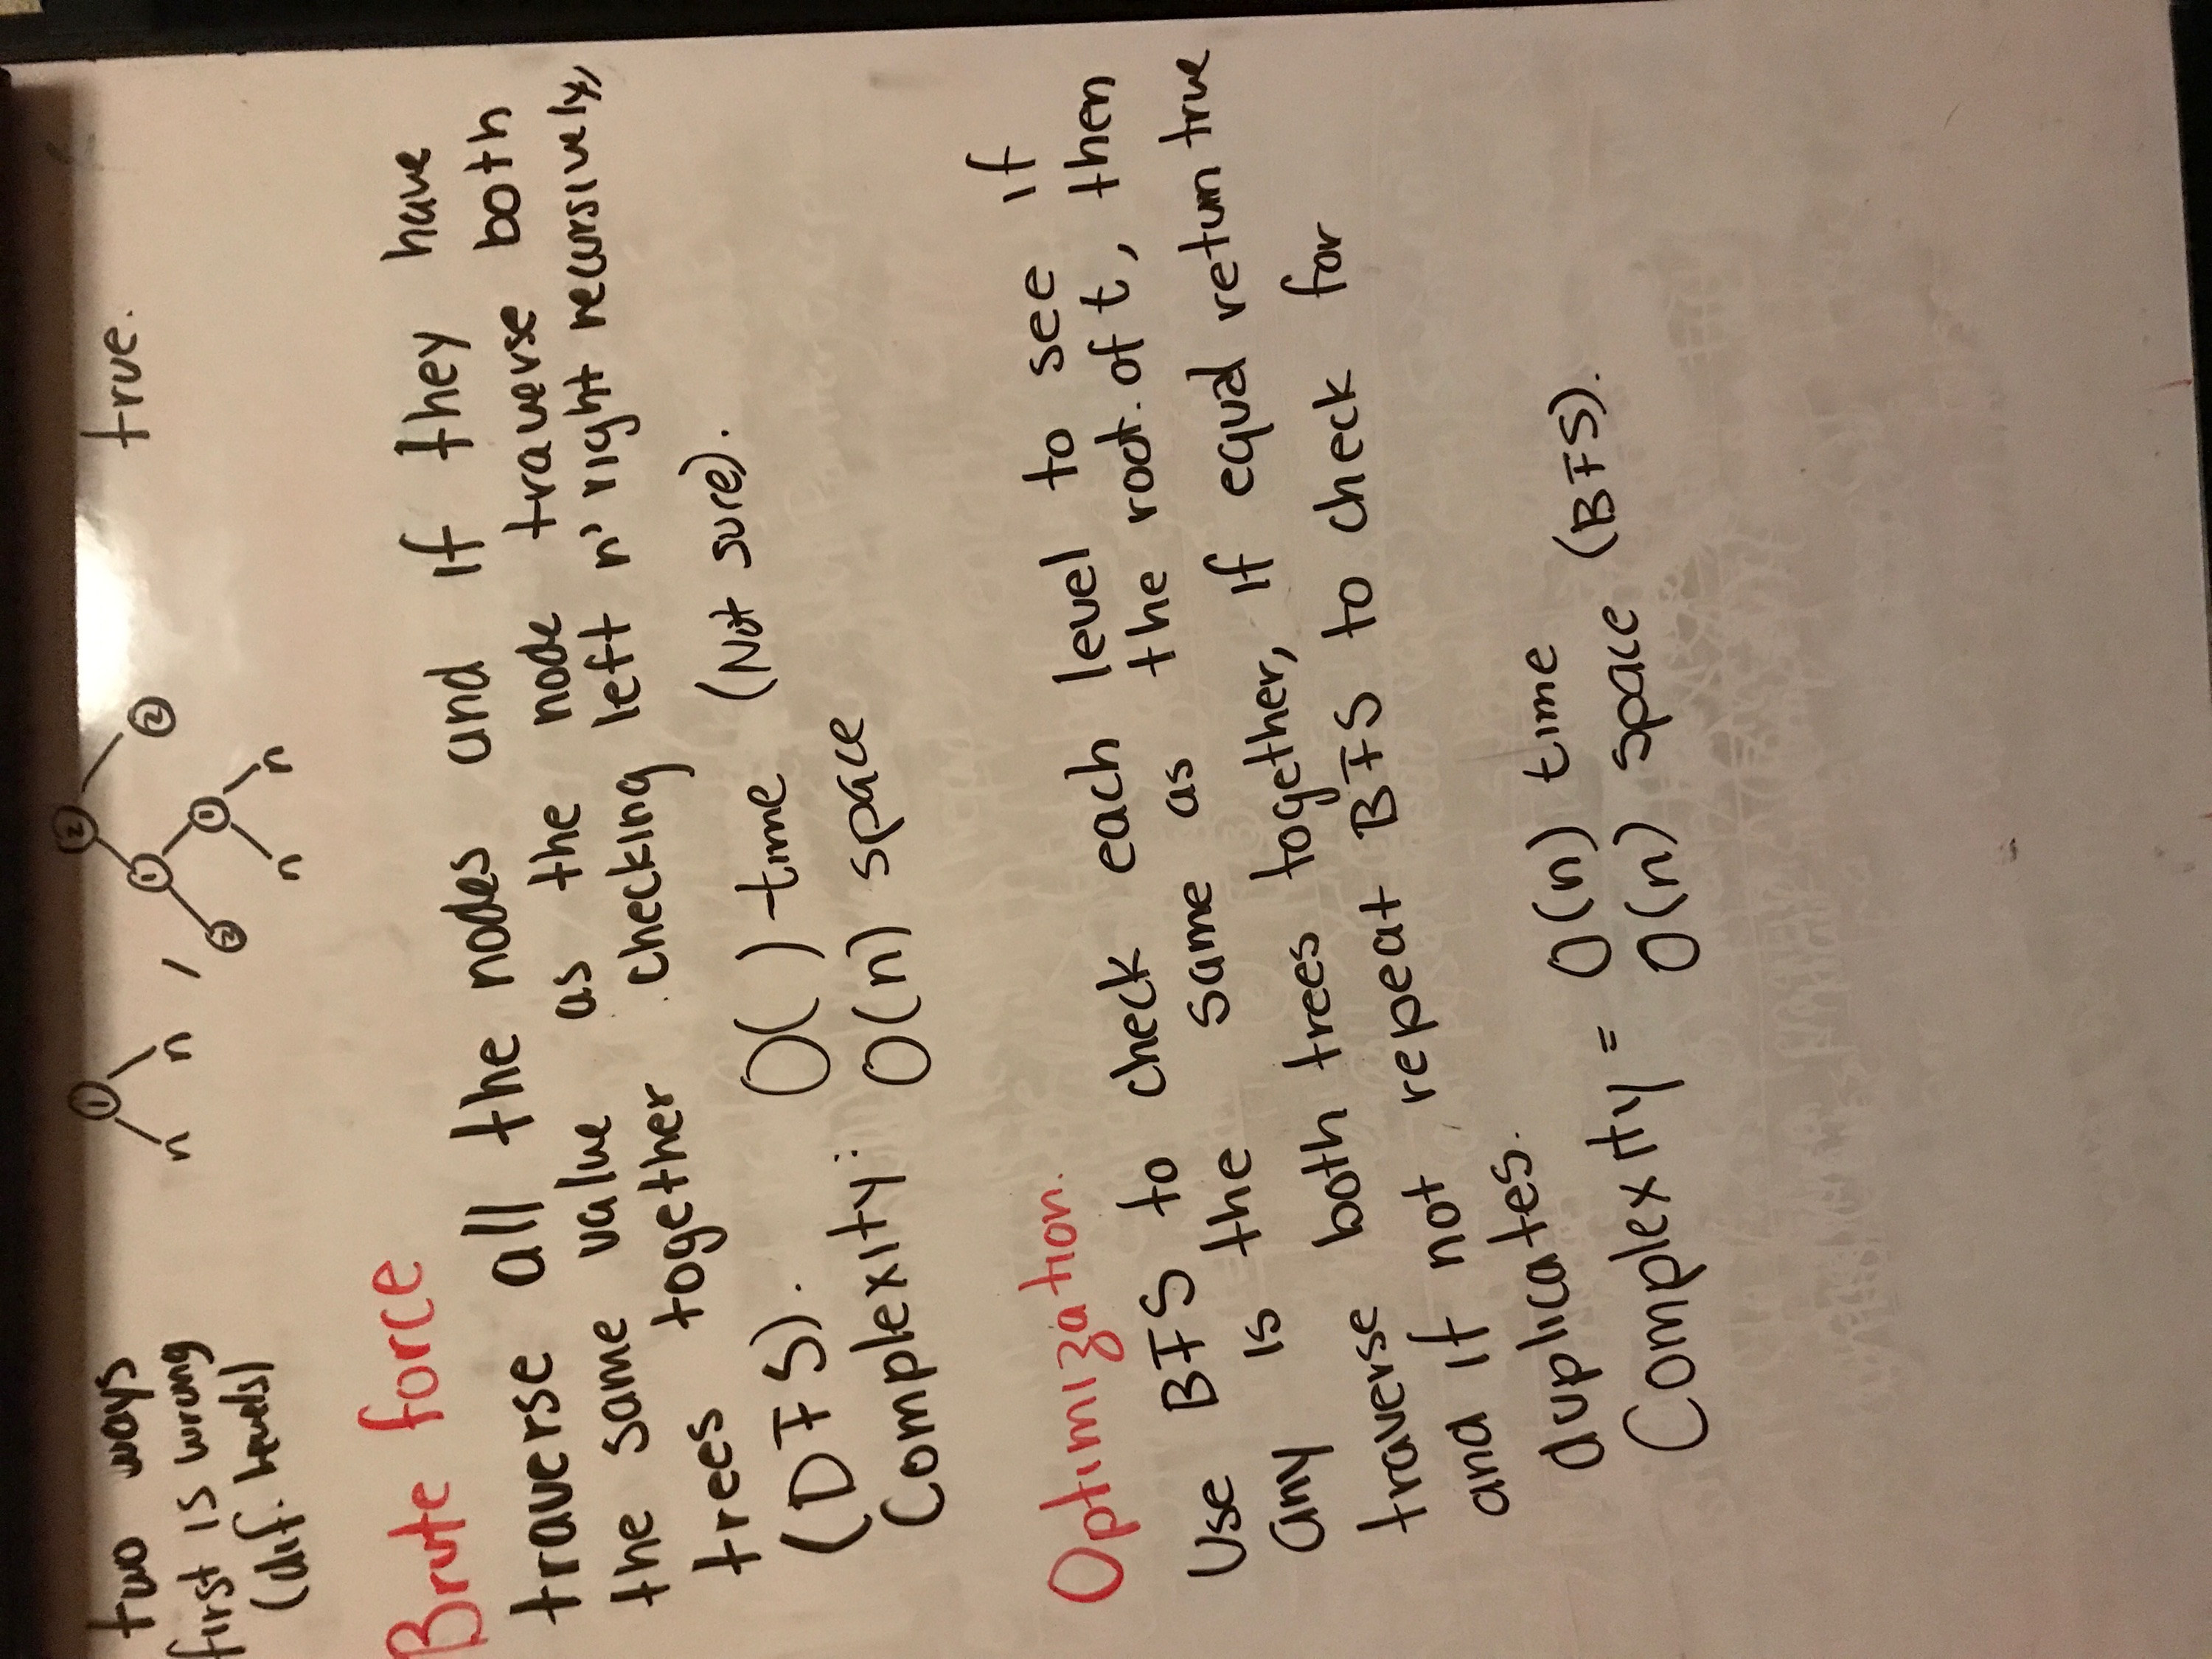 two ways
first is wrong
(dif. levels)
1
n n ,
2
1 2
2 1
n n
true.
Brute force
traverse all the nodes and if they have
the same value as the node traverse both
trees together checking left n' right recursively,
(DFS).
Complexity: O( ) time (Not sure).
O(n) space
Optimization.
Use BFS to check each level to see if
any is the same as the root. of t, then
traverse both trees together, if equal return true
and if not repeat BFS to check for
duplicates.
Complexity = O(n) time
O(n) space (BFS).